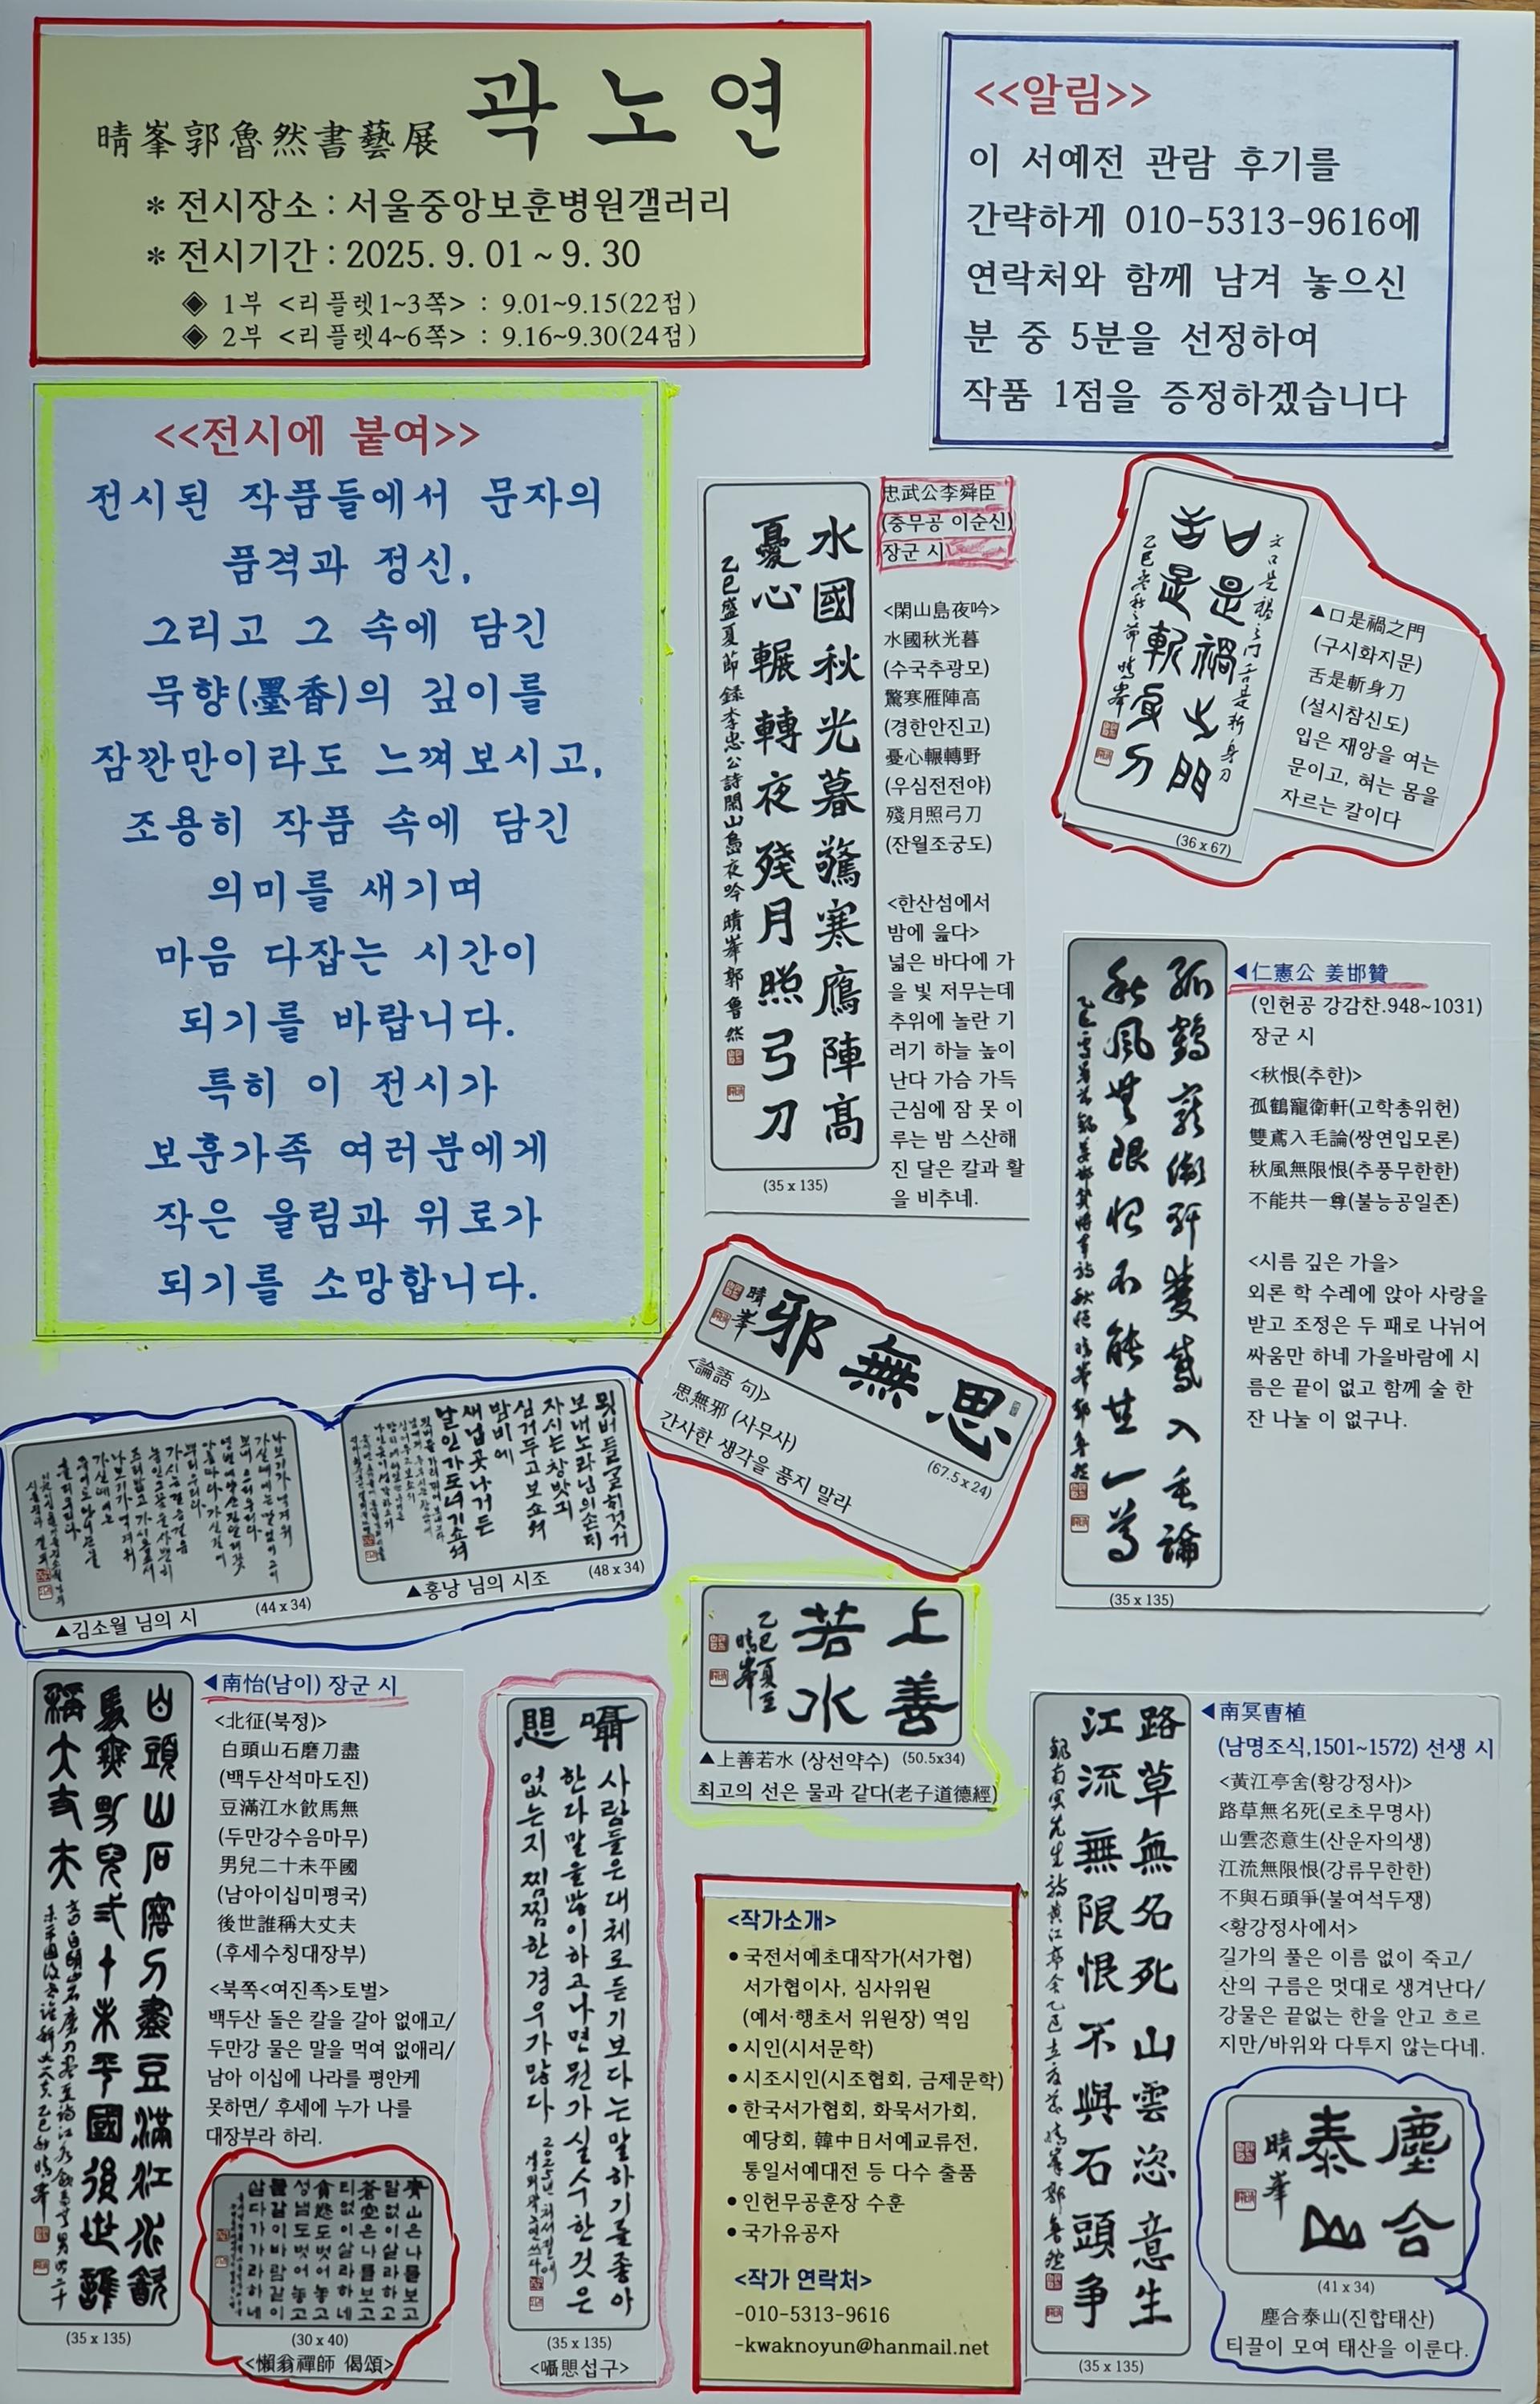 晴峯郭魯然書藝展 곽노연
* 전시장소 : 서울중앙보훈병원갤러리
* 전시기간 : 2025. 9. 01 ~ 9. 30
◈ 1부 <리플렛1~3쪽> : 9.01~9.15(22점)
◈ 2부 <리플렛4~6쪽> : 9.16~9.30(24점)
<<알림>>
이 서예전 관람 후기를
간략하게 010-5313-9616에
연락처와 함께 남겨 놓으신
분 중 5분을 선정하여
작품 1점을 증정하겠습니다
<<전시에 붙여>>
전시된 작품들에서 문자의
품격과 정신,
그리고 그 속에 담긴
묵향(墨香)의 깊이를
잠깐만이라도 느껴보시고,
조용히 작품 속에 담긴
의미를 새기며
마음 다잡는 시간이
되기를 바랍니다.
특히 이 전시가
보훈가족 여러분에게
작은 울림과 위로가
되기를 소망합니다.
水國秋光暮驚寒鴈陣高
憂心輾轉夜殘月照弓刀
乙巳盛夏節 錄李忠公詩閑山島夜吟 晴峯郭魯然
(35 x 135)
忠武公李舜臣
(충무공 이순신)
장군 시
<閑山島夜吟>
水國秋光暮
(수국추광모)
驚寒雁陣高
(경한안진고)
憂心輾轉野
(우심전전야)
殘月照弓刀
(잔월조궁도)
<한산섬에서
밤에 읊다>
넓은 바다에 가
을 빛 저무는데
추위에 놀란 기
러기 하늘 높이
난다 가슴 가득
근심에 잠 못 이
루는 밤 스산해
진 달은 칼과 활
을 비추네.
口是禍之門
舌是斬身刀
(36 x 67)
▲口是禍之門
(구시화지문)
舌是斬身刀
(설시참신도)
입은 재앙을 여는
문이고, 혀는 몸을
자르는 칼이다
孤鶴寵衛軒雙鳶入毛論
秋風無限恨不能共一尊
(35 x 135)
◀仁憲公 姜邯贊
(인헌공 강감찬.948~1031)
장군 시
<秋恨(추한)>
孤鶴寵衛軒(고학총위헌)
雙鳶入毛論(쌍연입모론)
秋風無限恨(추풍무한한)
不能共一尊(불능공일존)
<시름 깊은 가을>
외론 학 수레에 앉아 사랑을
받고 조정은 두 패로 나뉘어
싸움만 하네 가을바람에 시
름은 끝이 없고 함께 술 한
잔 나눌 이 없구나.
思無邪
晴峯
<論語 句)>
思無邪 (사무사)
간사한 생각을 품지 말라
(67.5 x 24)
▲김소월 님의 시
(44 x 34)
묏버들 굴히 것거
보내노라 님의손듸
자시는 창밧긔
심거두고 보쇼셔
밤비에
새닙곳 나거든
날인가도 너기쇼셔
▲홍낭 님의 시조
(48 x 34)
上善
若水
乙巳夏至
晴峯
▲上善若水 (상선약수) (50.5x34)
최고의 선은 물과 같다(老子道德經)
白頭山石磨刀盡豆滿江水飮
馬無男兒二十未平國後世誰
稱大丈夫
(35 x 135)
◀南怡(남이) 장군 시
<北征(북정)>
白頭山石磨刀盡
(백두산석마도진)
豆滿江水飮馬無
(두만강수음마무)
男兒二十未平國
(남아이십미평국)
後世誰稱大丈夫
(후세수칭대장부)
<북쪽<여진족>토벌>
백두산 돌은 칼을 갈아 없애고/
두만강 물은 말을 먹여 없애리/
남아 이십에 나라를 평안케
못하면/ 후세에 누가 나를
대장부라 하리.
靑山은나를보고
말없이살라하고
蒼空은나를보고
티없이살라하네
貪慾도벗어놓고
성냄도벗어놓고
물같이바람같이
살다가가라하네
(30 x 40)
<懶翁禪師 偈頌>
囁愳
사람들은 대체로 듣기보다는 말하기를 좋아
한다 말을 많이 하고나면 뭔가 실수한 것은
없는지 찜찜한 경우가 많다
(35 x 135)
<囁愳섭구>
<작가소개>
● 국전서예초대작가(서가협)
서가협이사, 심사위원
(예서·행초서 위원장) 역임
● 시인(시서문학)
● 시조시인(시조협회, 금제문학)
● 한국서가협회, 화묵서가회,
예당회, 韓中日서예교류전,
통일서예대전 등 다수 출품
● 인헌무공훈장 수훈
● 국가유공자
<작가 연락처>
-010-5313-9616
-kwaknoyun@hanmail.net
路草無名死山雲恣意生
江流無限恨不與石頭爭
(35 x 135)
◀南冥曺植
(남명조식,1501~1572) 선생 시
<黃江亭舍(황강정사)>
路草無名死(로초무명사)
山雲恣意生(산운자의생)
江流無限恨(강류무한한)
不與石頭爭(불여석두쟁)
<황강정사에서>
길가의 풀은 이름 없이 죽고/
산의 구름은 멋대로 생겨난다/
강물은 끝없는 한을 안고 흐르
지만/바위와 다투지 않는다네.
塵合
泰山
晴峯
(41 x 34)
塵合泰山(진합태산)
티끌이 모여 태산을 이룬다.